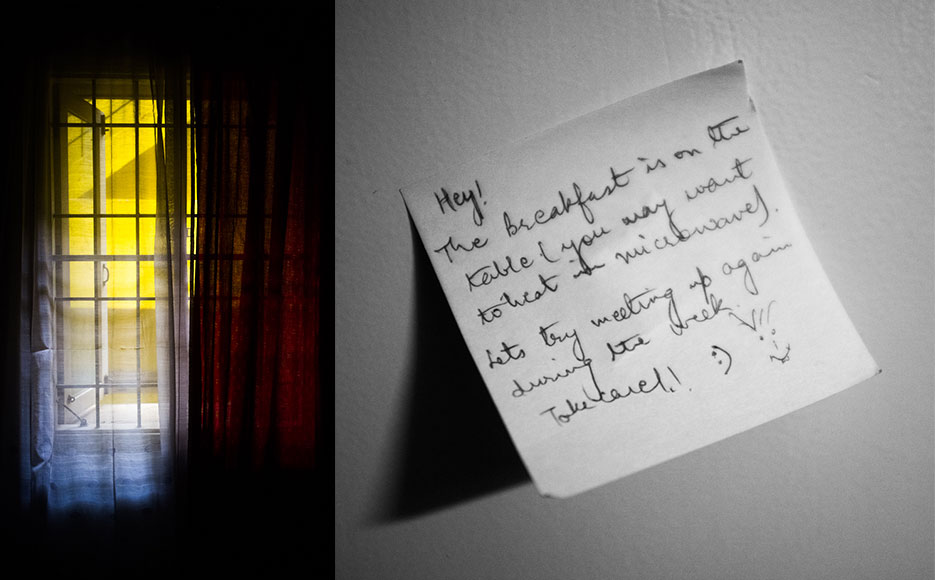 Hey!
The breakfast is on the
table (you may want
to heat in microwave).
Lets try meeting up again
during the week
Take care!! :)